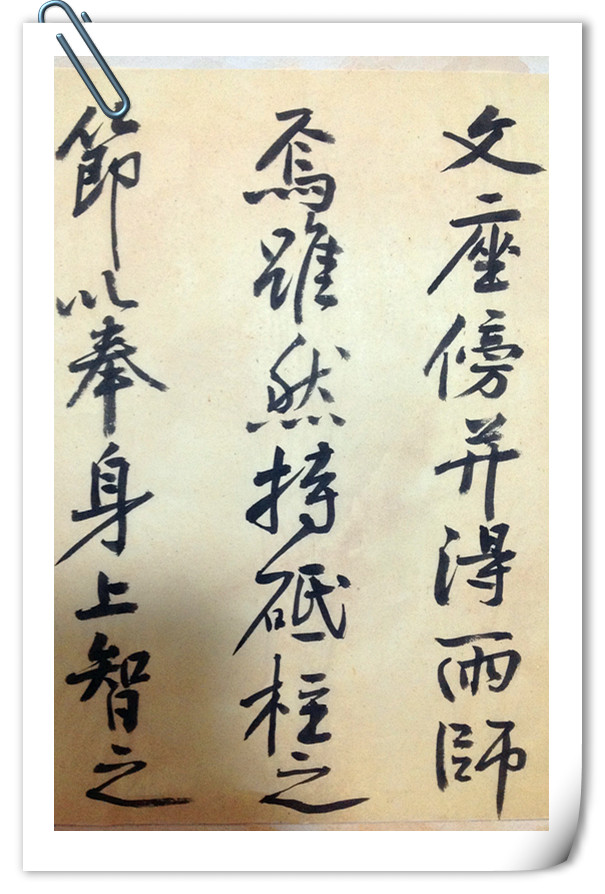 文座傍并得兩師
焉雖然持砥柱之
節以奉身上智之